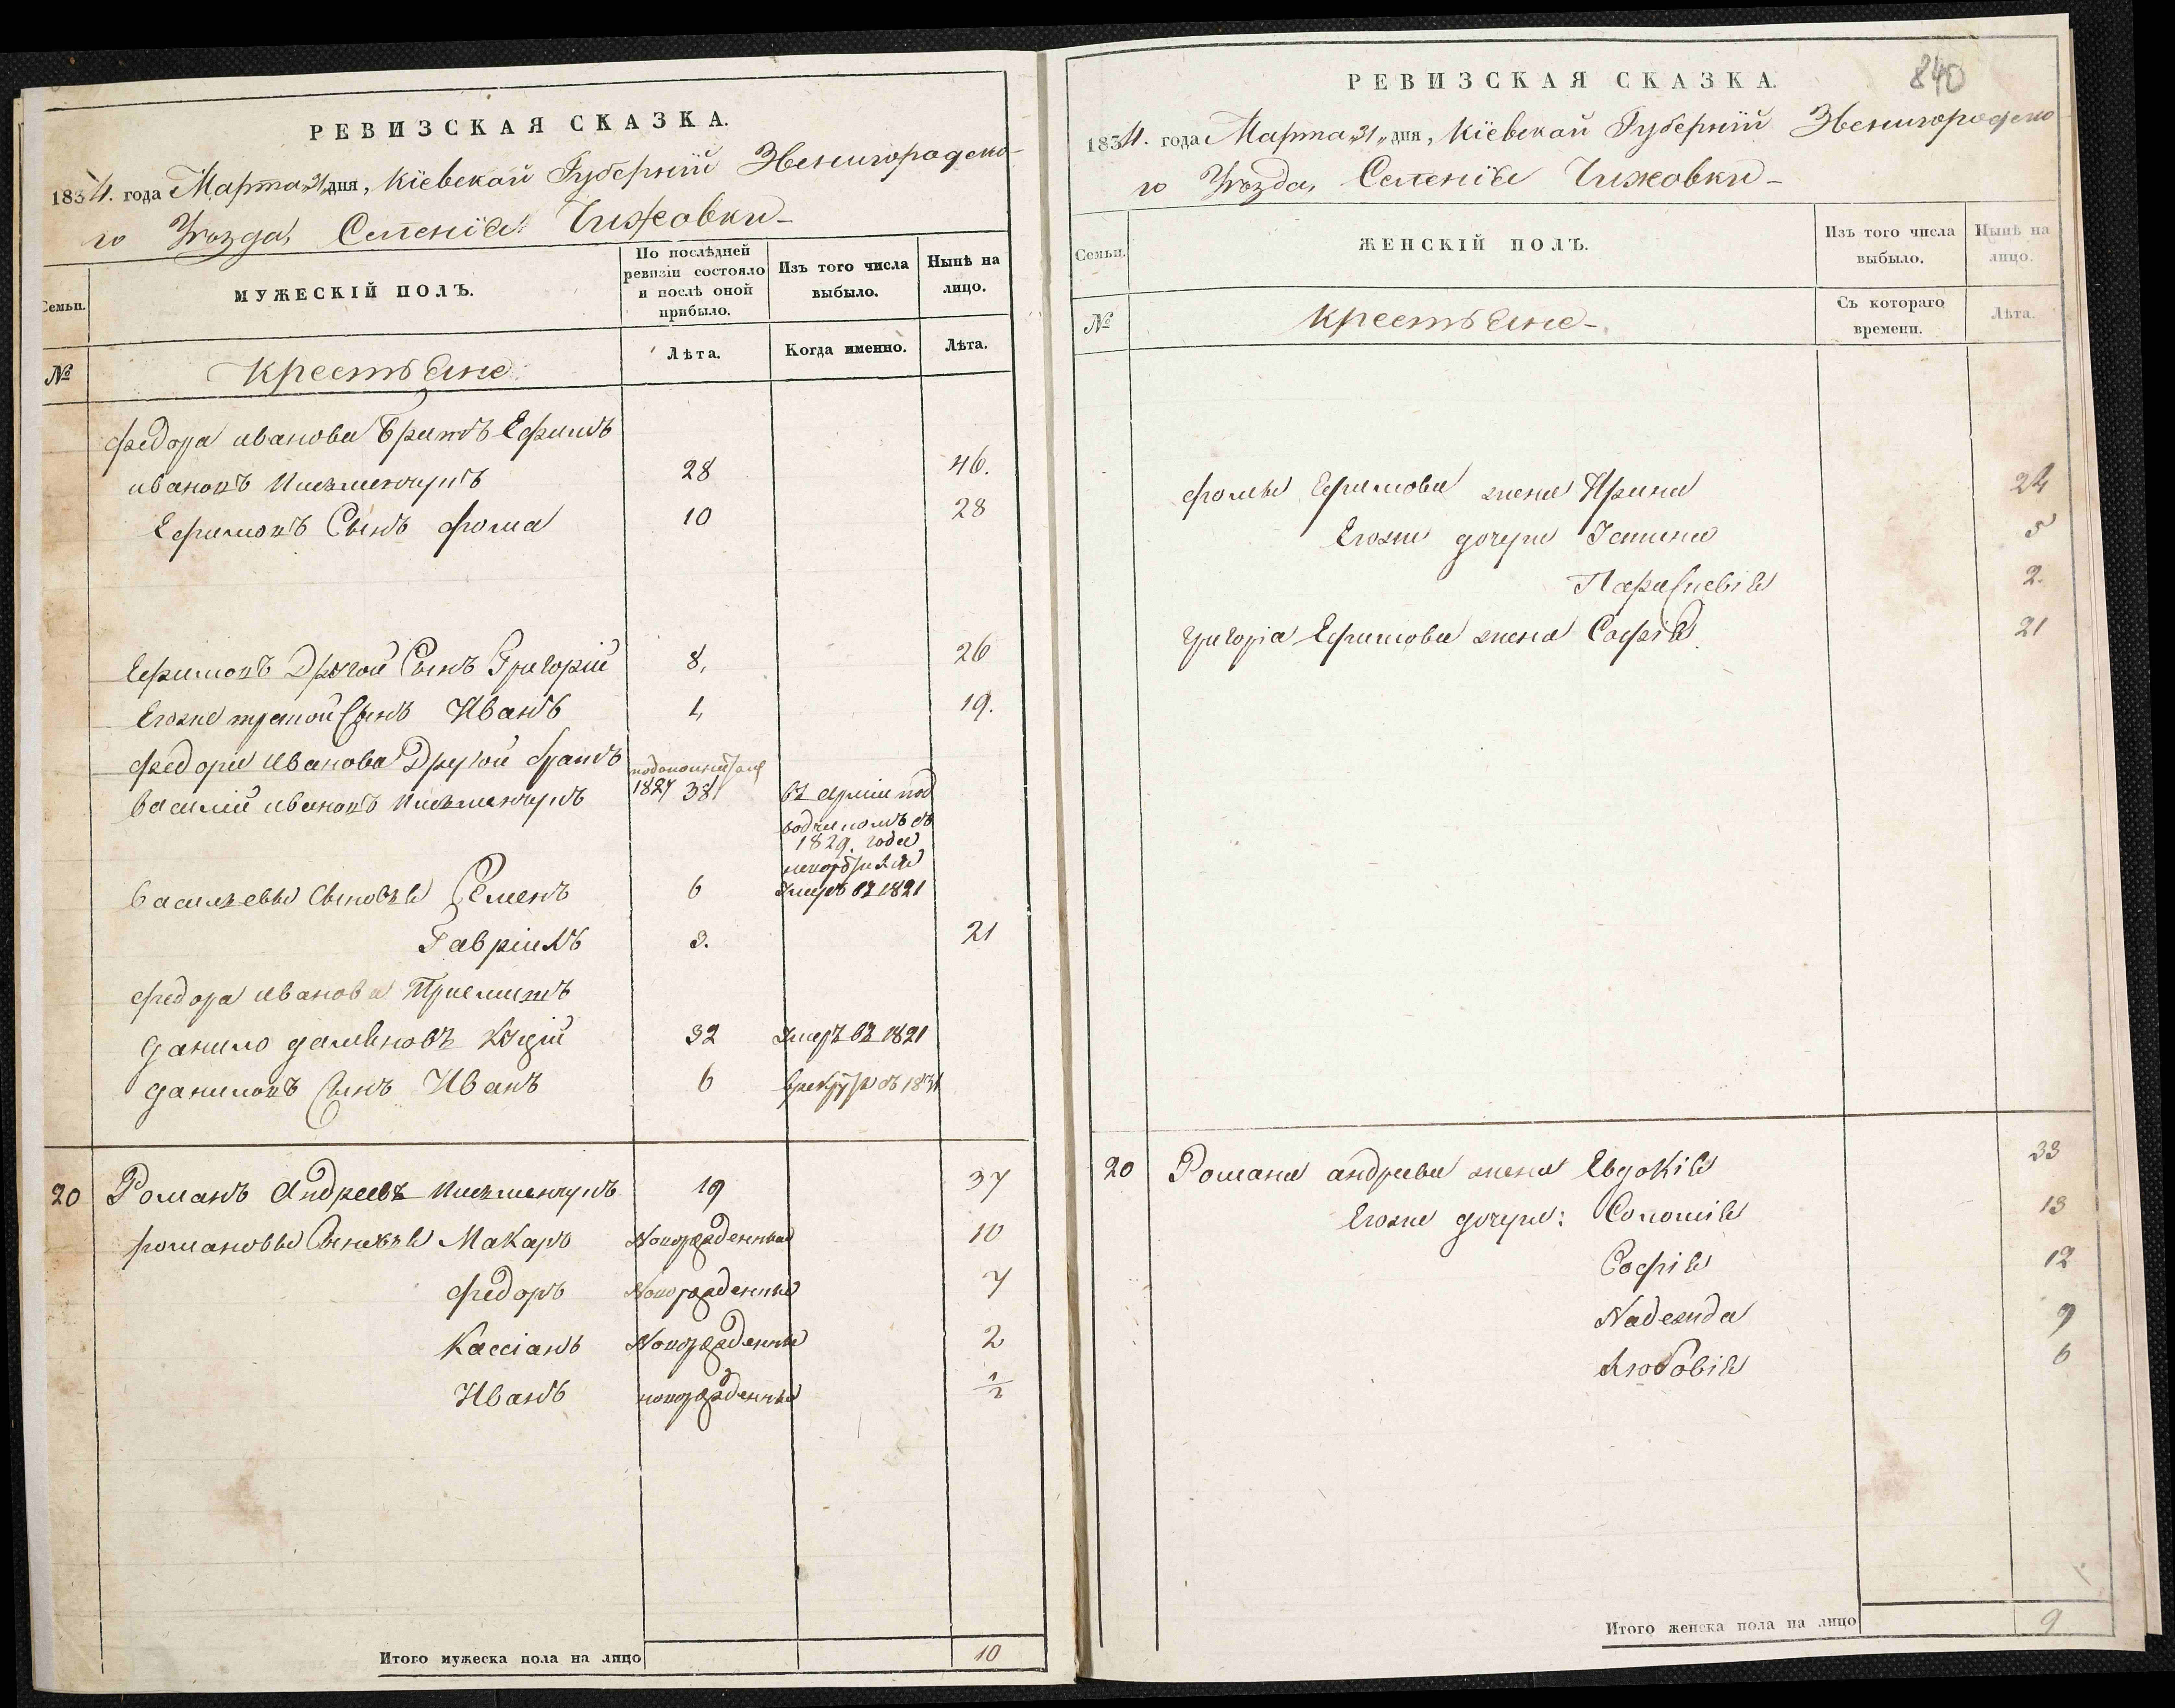 РЕВИЗСКАЯ СКАЗКА.
1834. года Марта „31„ дня, Кіевской Губерніи Звенигородско-
го Уѣзда, Селенія Чижовки-
Семьи.
МУЖЕСКІЙ ПОЛЪ.
По послѣдней ревизіи состояло и послѣ оной прибыло.
Изъ того числа выбыло.
Нынѣ на лицо.
№
Крестьяне
Лѣта.
Когда именно.
Лѣта.
Федора Иванова Братъ Ефимъ
Ивановъ Письменчукъ 28 46.
Ефимовъ Сынъ Фома 10 28
Ефимовъ Другой Сынъ Григорій 8, 26
Егоже третой Сынъ Иванъ 1, 19.
Федора Иванова Другой братъ
Василій Ивановъ Письменчукъ 1827 38 въ арміи под
водчикомъ съ
1829. года
Васильевы Сыновья Семенъ 6 Умеръ въ 1821
Гавріилъ 3. 21
Федора Иванова Пріемышъ
Данило Даміяновъ 32 Умеръ въ 1821
Даниловъ Сынъ Иванъ 6 въ 1831
20 Романъ Андреевъ Письменчукъ 19 37
Романовы Сыновья Макаръ Новорожденный 10
Федоръ Новорожденный 7
Кассіанъ Новорожденный 2
Иванъ новорожденный 1/2
Итого мужеска пола на лицо 10
840
РЕВИЗСКАЯ СКАЗКА.
1834. года Марта „31„ дня, Кіевской Губерніи Звенигородско
го Уѣзда, Селенія Чижовки-
Семьи.
ЖЕНСКІЙ ПОЛЪ.
Изъ того числа выбыло.
Нынѣ на лицо.
№
Крестьяне-
Съ котораго времени.
Лѣта.
Фомы Ефимова жена Ирина 24
Егоже дочери Іустина 5
Параскевія 2.
Григорія Ефимова жена Софія. 21
20 Романа Андреева жена Евдокія 33
Егоже дочери: Соломія 13
Софія 12
Надежда 9
Любовія 6
Итого женска пола на лицо 9